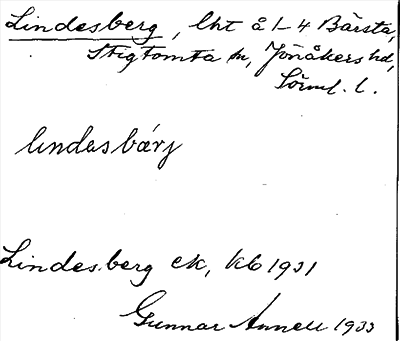 Lindesberg, lht å 1-4 Bärsta,
Stigtomta sn, Jönåkers hd,
Sörml. l.
lindasbárj
Lindesberg ek, kb 1931
Gunnar Annell 1933